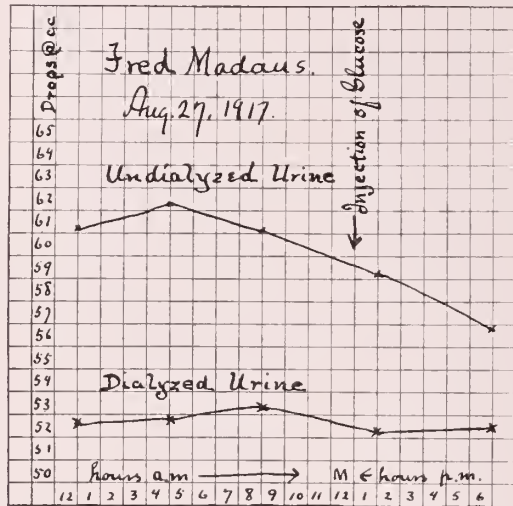 Drops@cc
Fred Madaus.
Aug. 27, 1917.
Injection of Glucose
Undialyzed Urine
65
64
63
62
61
60
59
58
57
56
55
54
53
52
51
50
Dialyzed Urine
hours a.m M hours p.m.
12 1 2 3 4 5 6 7 8 9 10 11 12 1 2 3 4 5 6